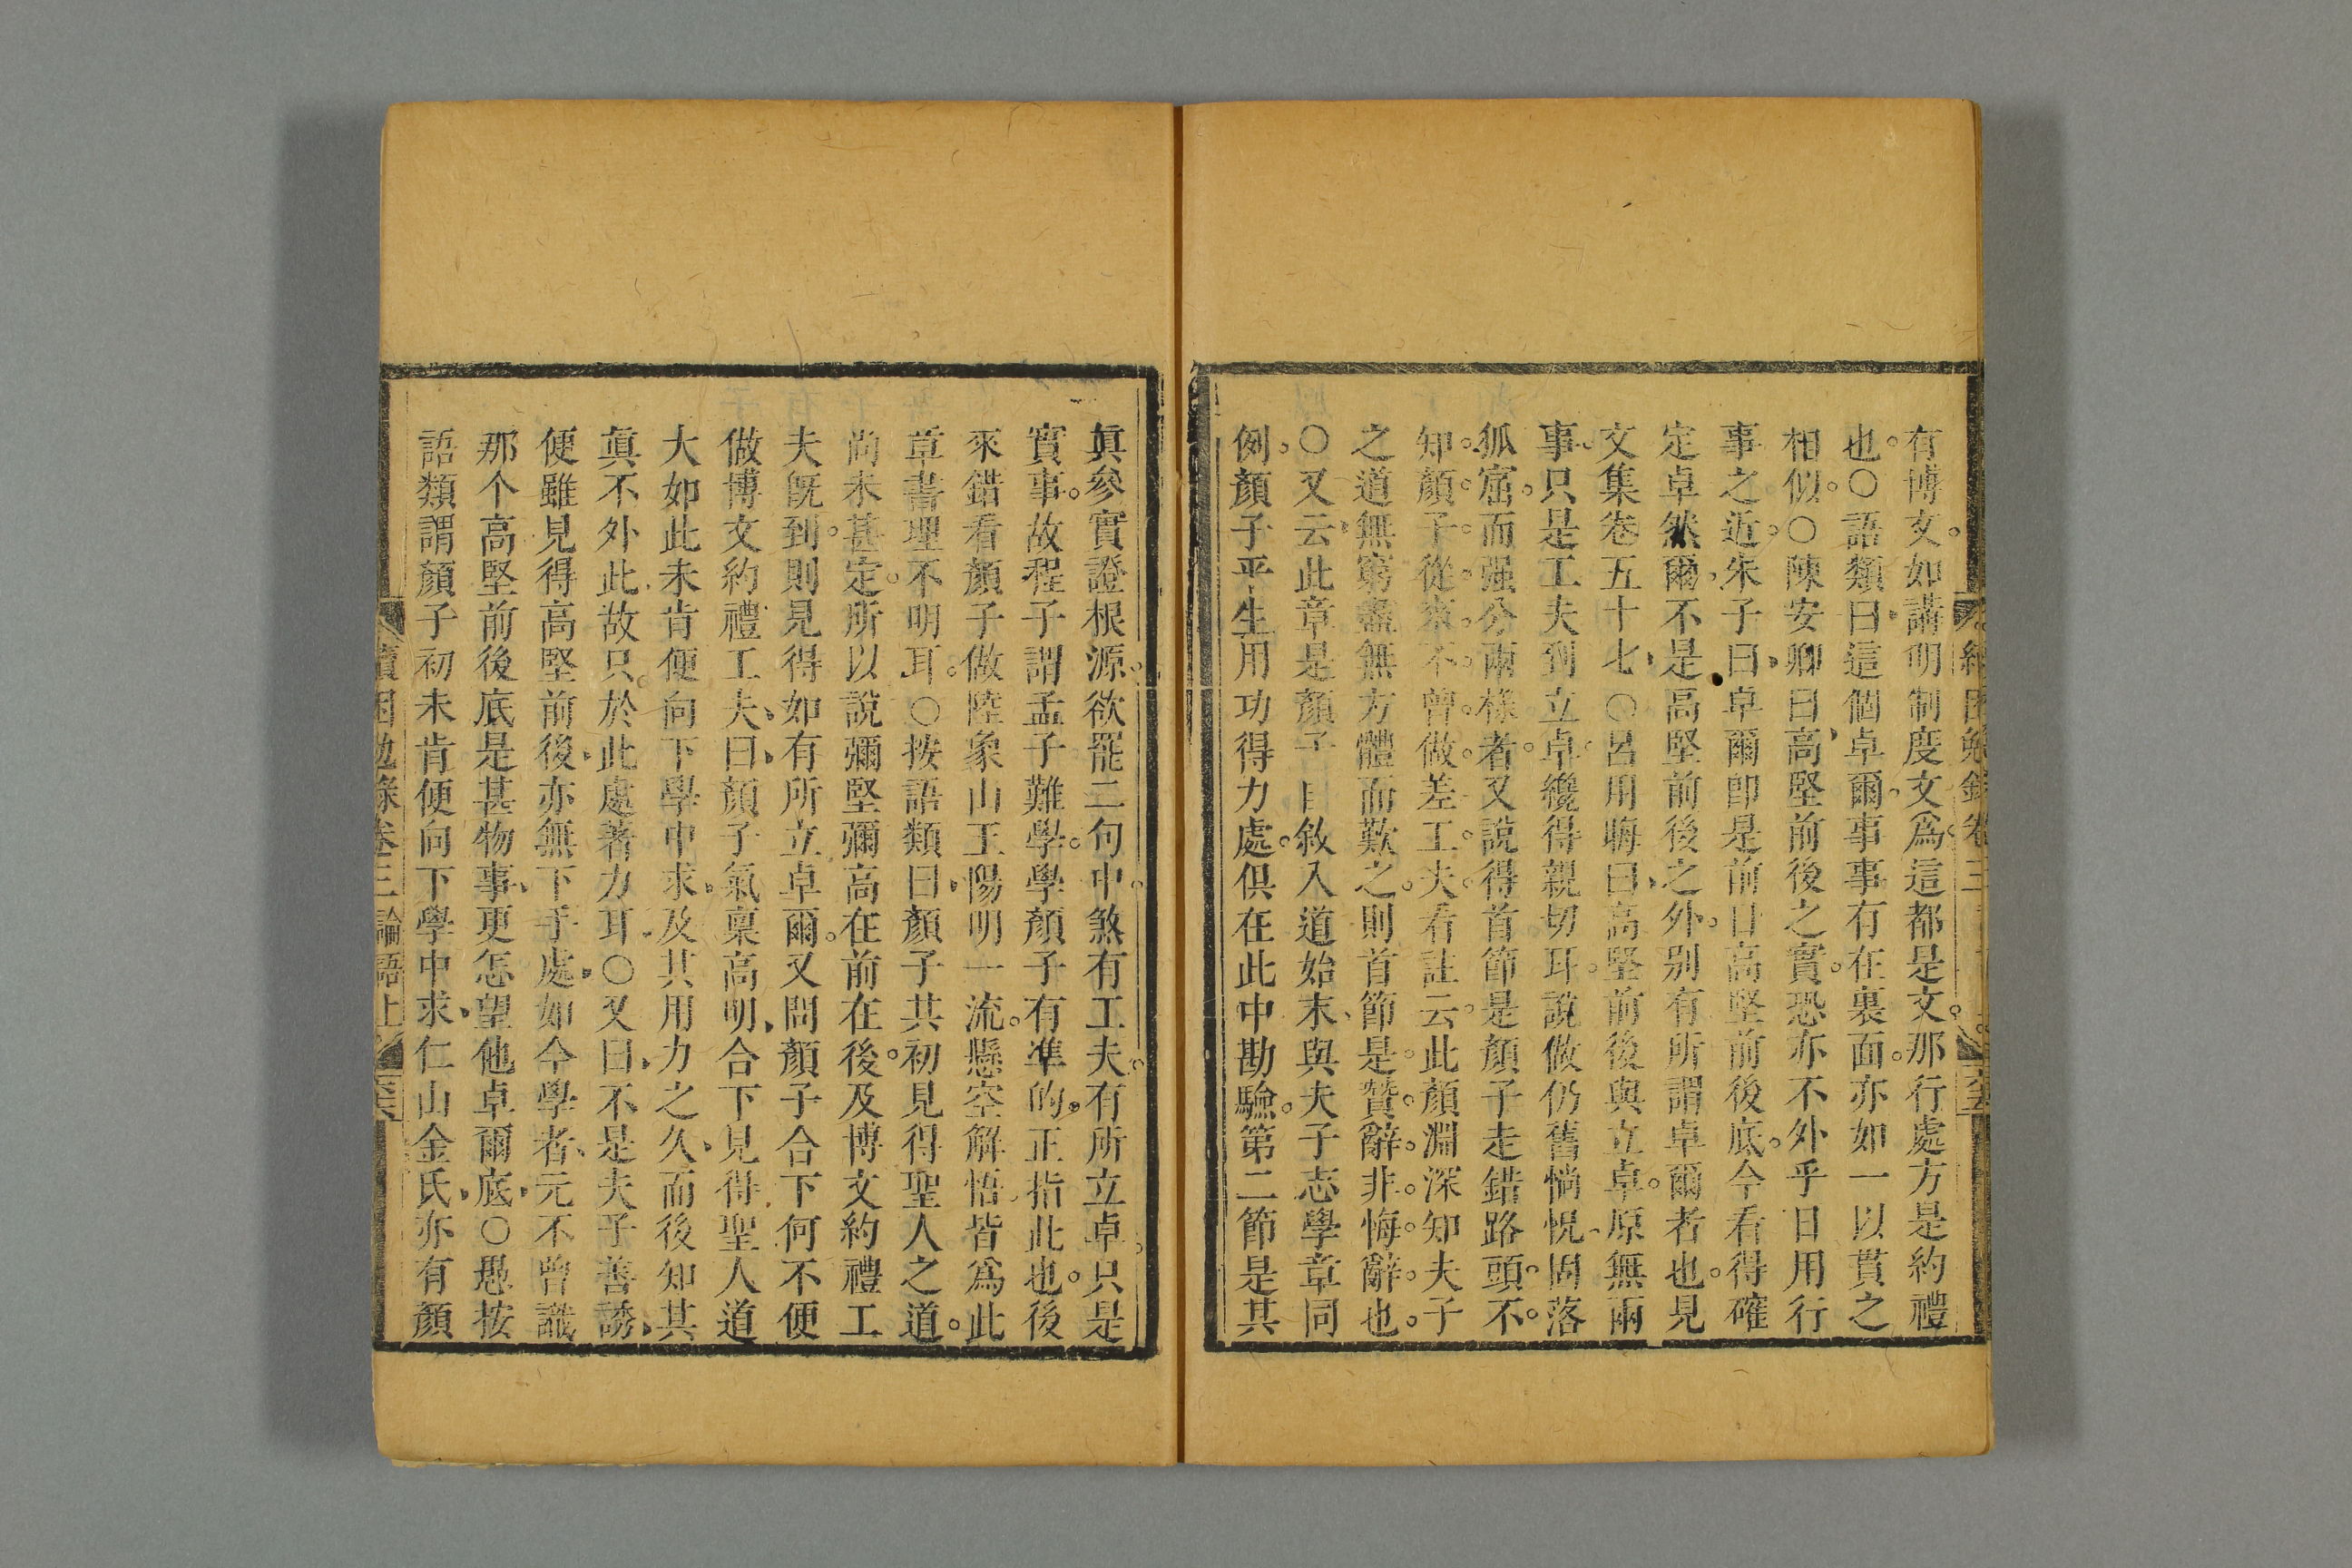 有博文如講明制度文爲這都是文那行處方是約禮
也○語類曰這個卓爾事事有在裏面亦如一以貫之
相似○陳安卿曰高堅前後之實恐亦不外乎日用行
事之近朱子曰卓爾卽是前日高堅前後底今看得確
定卓然爾不是高堅前後之外別有所謂卓爾者也見
文集卷五十七○呂用晦曰高堅前後與立卓原無兩
事只是工夫到立卓纔得親切耳說做仍舊惝怳固落
狐窟而强分兩樣者又說得首節是顏子走錯路頭不
知顏子從來不曾做差工夫看註云此顏淵深知夫子
之道無窮盡無方體而歎之則首節是贊辭非悔辭也
○又云此章是顏子自敘入道始末與夫子志學章同
例顏子平生用功得力處俱在此中勘驗第二節是其
眞參實證根源欲罷二句中煞有工夫有所立卓只是
實事故程子謂孟子難學學顏子有準的正指此也後
來錯看顏子做陸象山王陽明一流懸空解悟皆爲此
章書理不明耳○按語類曰顏子其初見得聖人之道
尚未甚定所以說彌堅彌高在前在後及博文約禮工
夫旣到則見得如有所立卓爾又問顏子合下何不便
做博文約禮工夫曰顏子氣稟高明合下見得聖人道
大如此未肯便向下學中求及其用力之久而後知其
眞不外此故只於此處著力耳○又曰不是夫子善誘
便雖見得高堅前後亦無下手處如今學者元不曾識
那个高堅前後底是甚物事更怎望他卓爾底○愚按
語類謂顏子初未肯便向下學中求仁山金氏亦有顏
續困勉錄卷三 論語上